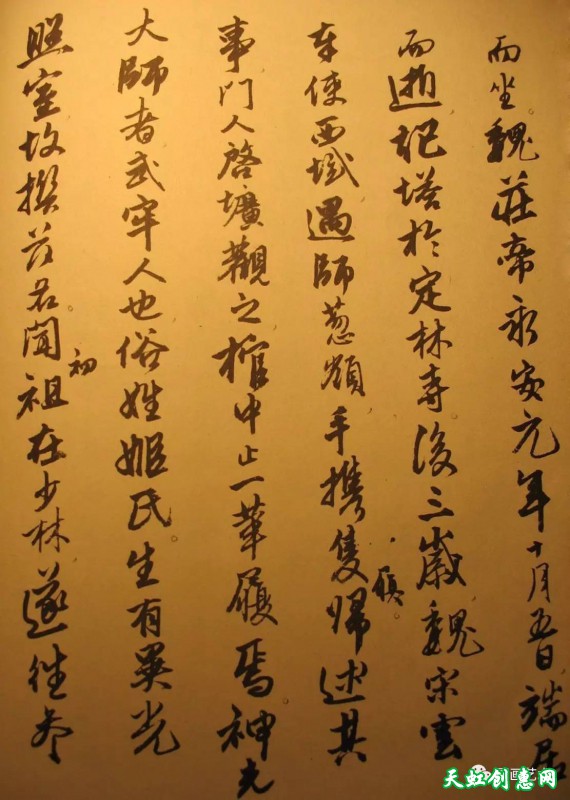 而坐魏莊帝永安元年十月五日端居
而逝塔於定林寺後三歲魏宋雲
奉使西域遇師葱嶺手攜隻履歸述其
事門人啓壙觀之棺中止一革履焉神光
大師者武牢人也俗姓姬氏生有異光
照室故撰茲名聞初祖在少林遂往參
天虹创惠网